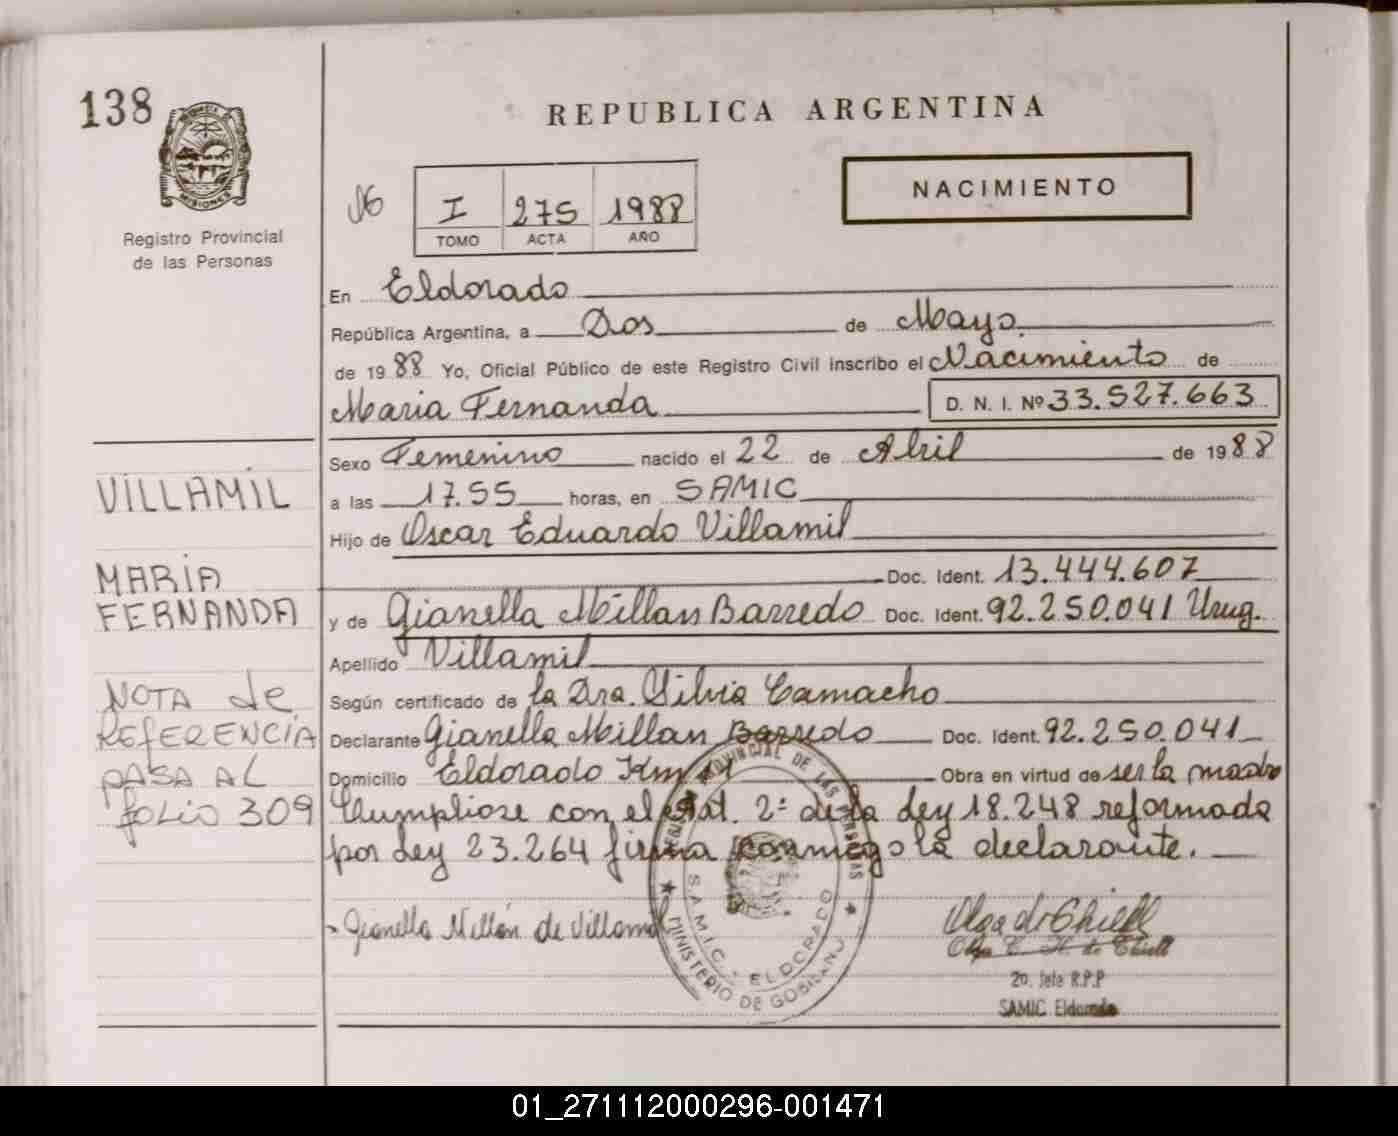 138
REPUBLICA ARGENTINA
MISIONES
Registro Provincial
de las Personas
I 275 1988
TOMO ACTA AÑO
NACIMIENTO
En Eldorado
República Argentina, a Dos de Mayo
de 1988 Yo, Oficial Público de este Registro Civil inscribo el Nacimiento de
Maria Fernanda D. N. I. Nº 33.527.663
Sexo Femenino nacido el 22 de Abril de 1988
a las 17.55 horas, en SAMIC
Hijo de Oscar Eduardo Villamil
Doc. Ident. 13.444.607
y de Gianella Millan Barredo Doc. Ident. 92.250.041 Urug.
Apellido Villamil
Según certificado de la Dra. Silvia Camacho
Declarante Gianella Millan Barredo Doc. Ident. 92.250.041
Domicilio Eldorado Km Obra en virtud de ser la madre
Cumpliose con el Art. 2º de la Ley 18.248 reformada
por Ley 23.264 firma conmigo la declarante.
VILLAMIL
MARIA
FERNANDA
NOTA de
REFERENCIA
PASA AL
folio 309
Gianella Millán de Villamil
REGISTRO PROVINCIAL DE LAS PERSONAS
S.A.M.I.C. - ELDORADO
MINISTERIO DE GOBIERNO
Olga de Thiell
Olga C. H. de Thiell
2o. Jefe R.P.P
SAMIC Eldorado
01_271112000296-001471